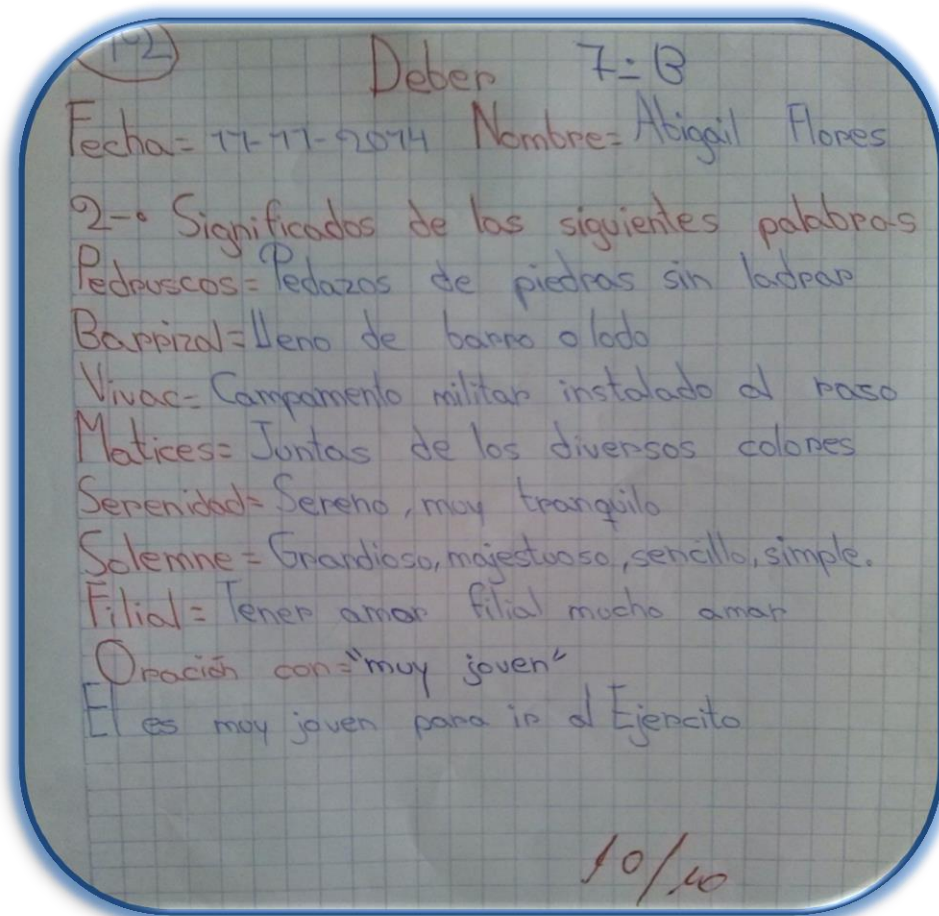 142
Deber 7=B
Fecha= 17-11-2014 Nombre= Abigail Flores
2-• Significados de las siguientes palabras
Pedruscos= Pedazos de piedras sin ladrar
Barrizal= lleno de barro o lodo
Vivac= Campamento militar instalado al raso
Matices= Juntas de los diversos colores
Serenidad= Sereno, muy tranquilo
Solemne = Grandioso, majestuoso, sencillo, simple.
Filial = Tener amar filial mucho amar
Oración con="muy joven"
El es muy joven para ir al Ejercito
10/10